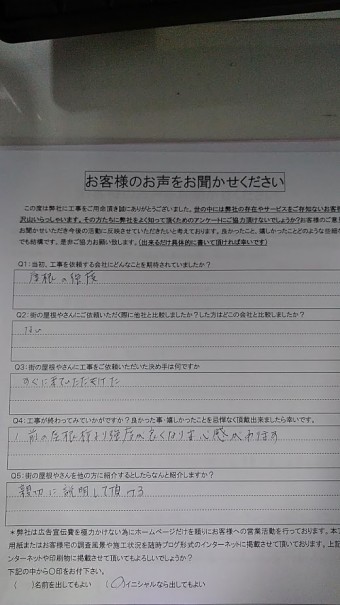 お客様のお声をお聞かせください
この度は弊社に工事をご用命頂き誠にありがとうございました。世の中には弊社の存在やサービスをご存知ないお客様
沢山いらっしゃいます。その方たちに弊社をよく知って頂くためのアンケートにご協力頂けないでしょうか?お客様のご意見
お聞かせいただき今後の活動に反映させていただきたいと考えております。良かったこと、嬉しかったことどのような些細な
でも結構です。是非ご協力お願い致します。(出来るだけ具体的に書いて頂ければ幸いです)
Q1:当初、工事を依頼する会社にどんなことを期待されていましたか?
屋根の強度
Q2:街の屋根やさんにご依頼いただく際に他社と比較しましたか?した方はどこの会社と比較しましたか?
Q3:街の屋根やさんに工事をご依頼いただいた決め手は何ですか
すぐに来ていただけた
Q4:工事が終わってみていかがですか?良かった事・嬉しかったことを忌憚なく頂戴出来ましたら幸いです。
前の屋根材より強度が良くなり安心感があります
Q5:街の屋根やさんを他の方に紹介するとしたらなんと紹介しますか?
親切に説明して頂ける
*弊社は広告宣伝費を極力かけない為にホームページだけを頼りにお客様への営業活動を行っております。本ア
用紙またはお客様宅の調査風景や施工状況を随時ブログ形式のインターネットに掲載させて頂いております。上記
ンターネットや印刷物に掲載させて頂いてもよろしいでしょうか?
下記の中から〇印をお付下さい。
( )名前を出してもよい (〇)イニシャルなら出してもよい